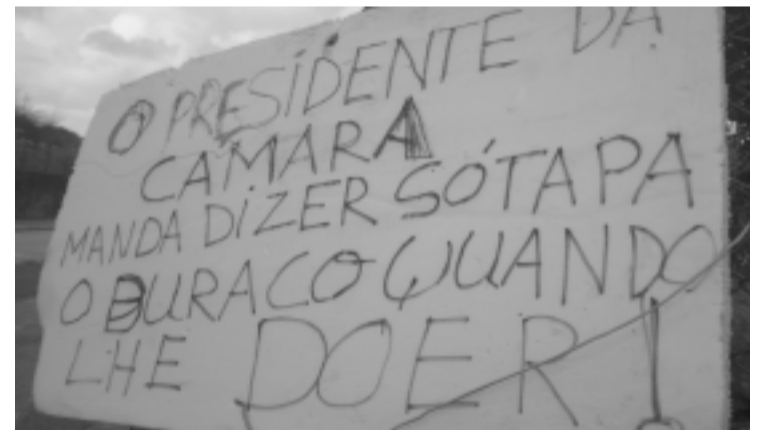 O PRESIDENTE DA
CAMARA
MANDA DIZER SÓ TAPA
O BURACO QUANDO
LHE DOER!